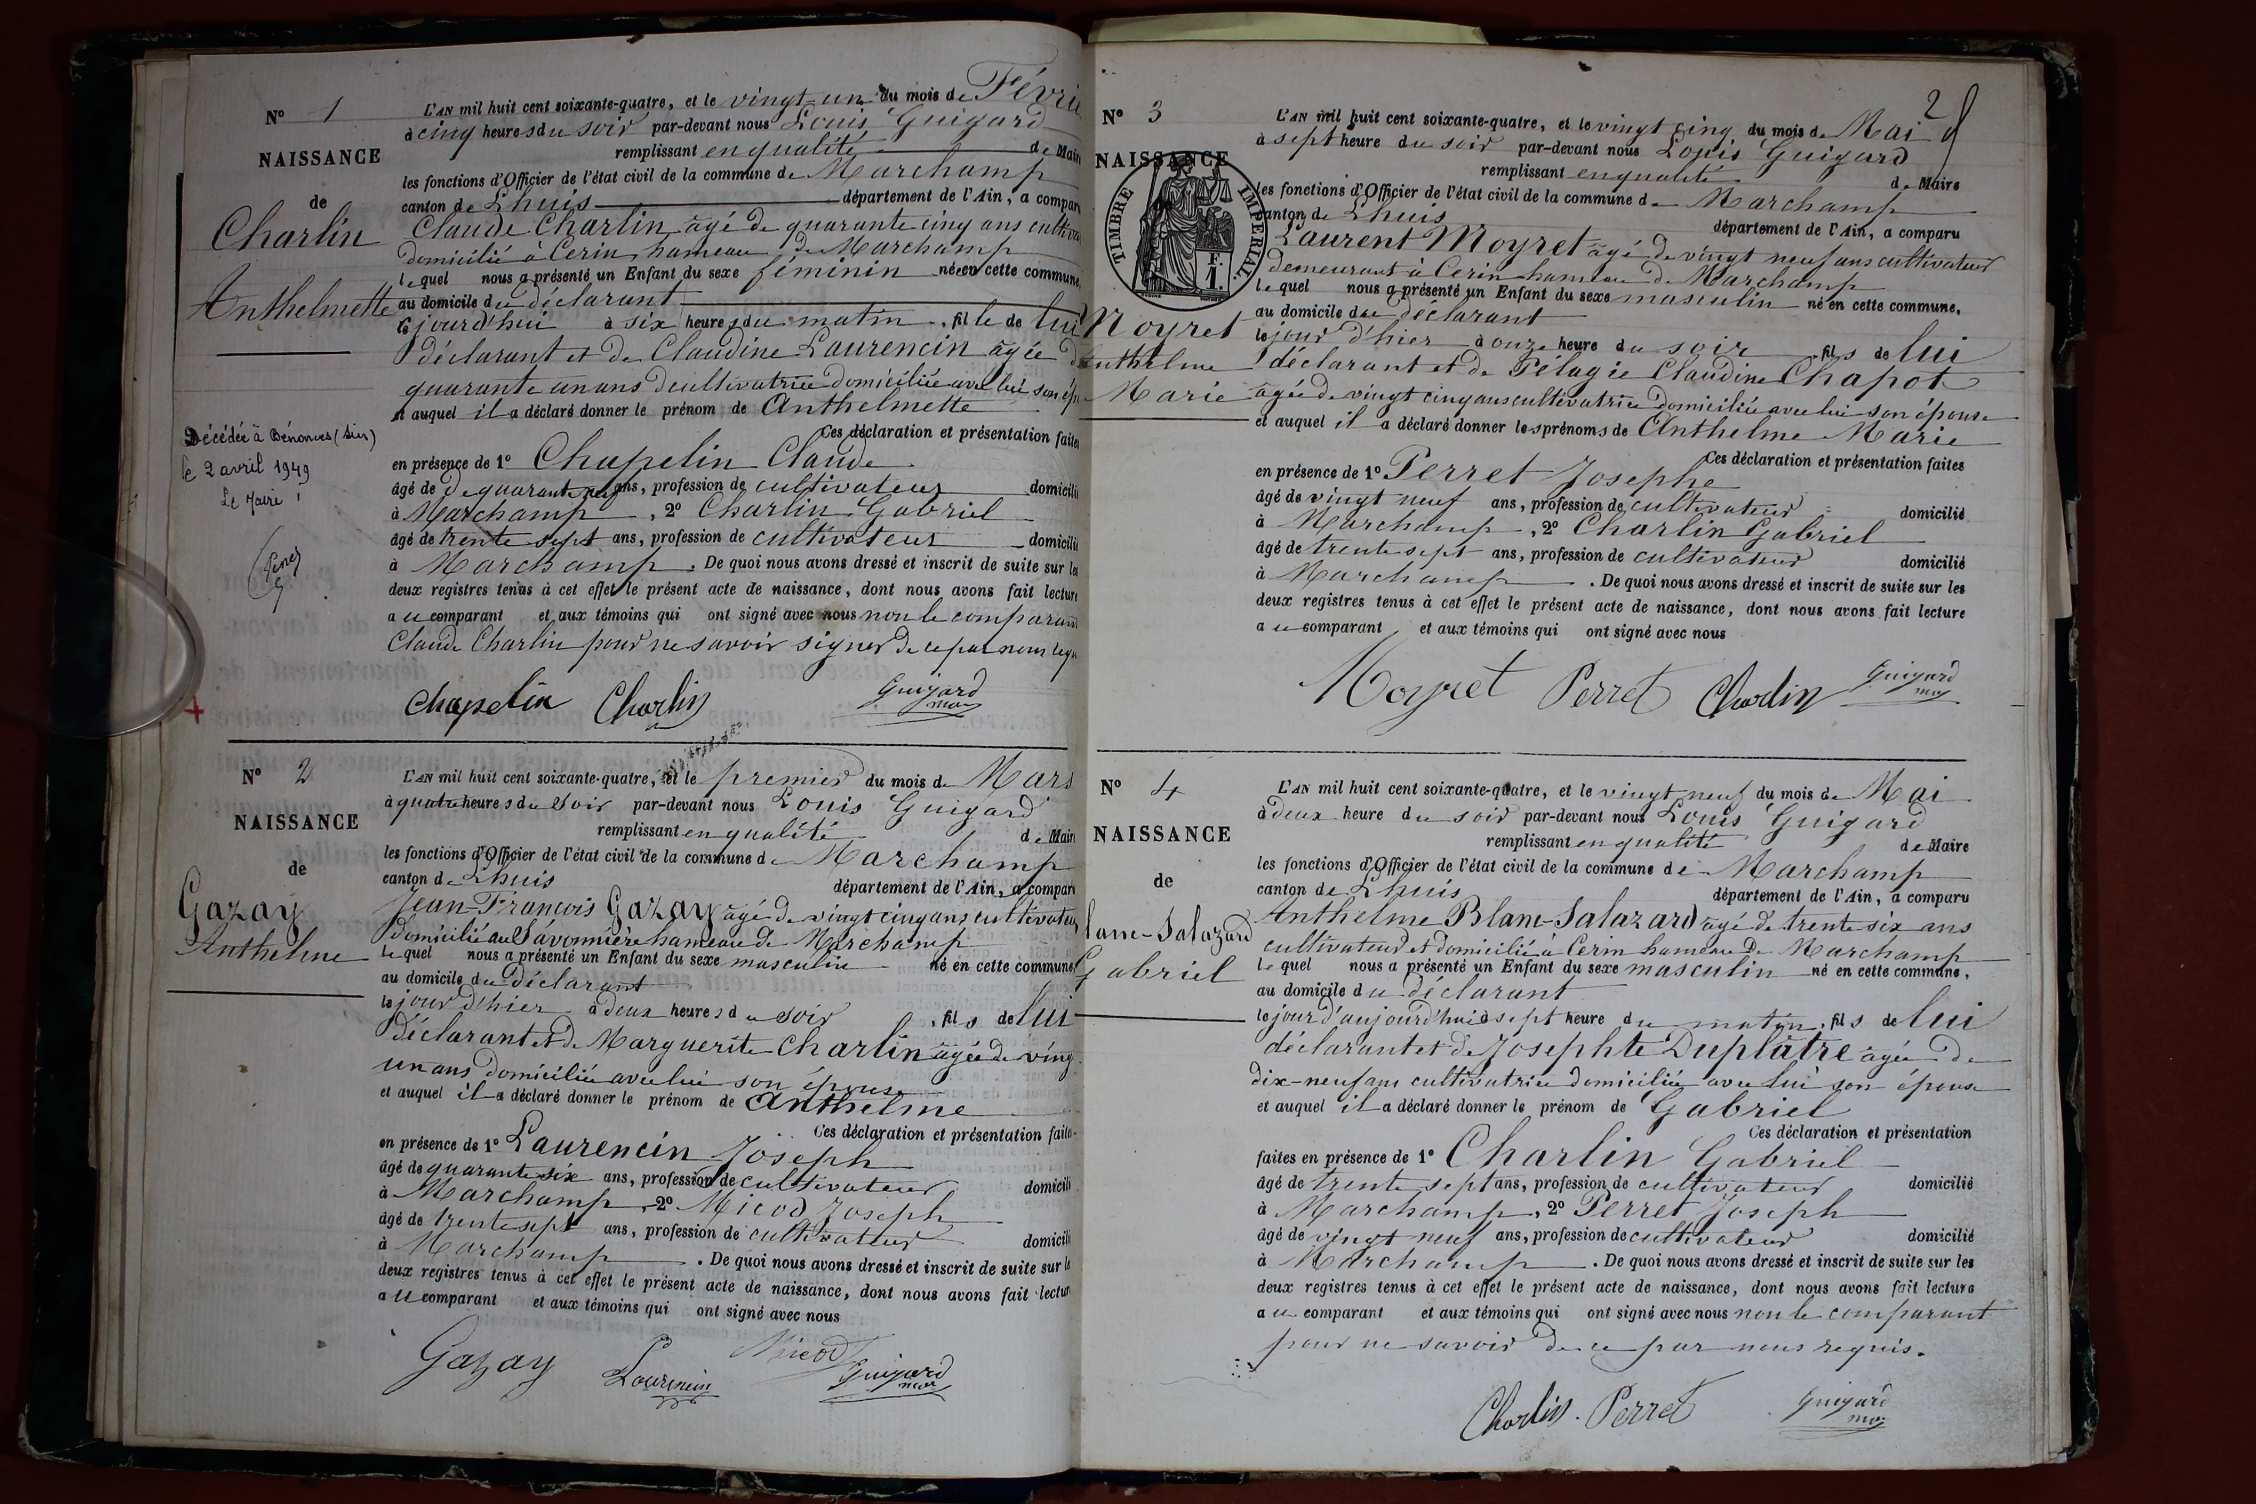 N° 1
NAISSANCE
de
Charlin
Anthelmette
Décédée à Bénonces (Ain)
le 2 avril 1949
Le Maire
L'AN mil huit cent soixante-quatre, et le vingt-un du mois de Févrie
à cinq heures du soir par-devant nous Louis Guigard
remplissant en qualité de Mair
les fonctions d'Officier de l'état civil de la commune de Marchamp
canton de Lhuis département de l'Ain, a compar
Claude Charlin âgé de quarante cinq ans cultiva
domicilié à Cerin hameau de Marchamp
lequel nous a présenté un Enfant du sexe féminin né en cette commune,
au domicile du déclarant
jourd'hui à six heures du matin, fille de lui
déclarant et de Claudine Laurencin âgée d
quarante un ans cultivatrice domiciliée avec lui son ép
et auquel il a déclaré donner le prénom de Anthelmette
Ces déclaration et présentation faites
en présence de 1° Chapelin Claude
âgé de quarante ans, profession de cultivateur domicilié
à Marchamp, 2° Charlin Gabriel
âgé de trente sept ans, profession de cultivateur domicilié
à Marchamp. De quoi nous avons dressé et inscrit de suite sur les
deux registres tenus à cet effet le présent acte de naissance, dont nous avons fait lecture
au comparant et aux témoins qui ont signé avec nous non le comparant
Claude Charlin pour ne savoir signer de ce par nous requ
Chapelin Charlin Guigard
maire
N° 2
NAISSANCE
de
Gazay
Anthelme
L'AN mil huit cent soixante-quatre, et le premier du mois de Mars
à quatre heures du soir par-devant nous Louis Guigard
remplissant en qualité de Mair
les fonctions d'Officier de l'état civil de la commune de Marchamp
canton de Lhuis département de l'Ain, a compar
Jean-François Gazay âgé de vingt cinq ans cultivateur
domicilié au Savonnière hameau de Marchamp
lequel nous a présenté un Enfant du sexe masculin né en cette commune
au domicile du déclarant
le jour d'hier à deux heures du soir, fils de lui
déclarant et de Marguerite Charlin âgée de ving
un ans domiciliée avec lui son épouse
et auquel il a déclaré donner le prénom de Anthelme
Ces déclaration et présentation faite
en présence de 1° Laurencin Joseph
âgé de quarante six ans, profession de cultivateur domicili
à Marchamp, 2° Micod Joseph
âgé de trente sept ans, profession de cultivateur domicili
à Marchamp. De quoi nous avons dressé et inscrit de suite sur le
deux registres tenus à cet effet le présent acte de naissance, dont nous avons fait lectur
au comparant et aux témoins qui ont signé avec nous
Gazay Laurencin Micod Guigard
maire
2
N° 3
NAISSANCE
TIMBRE IMPERIAL
F.
1.
Moyret
Anthelme
Marie
L'AN mil huit cent soixante-quatre, et le vingt cinq du mois de Mai
à sept heure du soir par-devant nous Louis Guigard
remplissant en qualité de Maire
les fonctions d'Officier de l'état civil de la commune de Marchamp
canton de Lhuis département de l'Ain, a comparu
Laurent Moyret âgé de vingt neuf ans cultivateur
demeurant à Cerin hameau de Marchamp
lequel nous a présenté un Enfant du sexe masculin né en cette commune,
au domicile du déclarant
le jour d'hier à onze heure du soir, fils de lui
déclarant et de Pélagie Claudine Chapot
âgée de vingt cinq ans cultivatrice domiciliée avec lui son épouse
et auquel il a déclaré donner les prénoms de Anthelme Marie
Ces déclaration et présentation faites
en présence de 1° Perret Josephe
âgé de vingt neuf ans, profession de cultivateur domicilié
à Marchamp, 2° Charlin Gabriel
âgé de trente sept ans, profession de cultivateur domicilié
à Marchamp. De quoi nous avons dressé et inscrit de suite sur les
deux registres tenus à cet effet le présent acte de naissance, dont nous avons fait lecture
au comparant et aux témoins qui ont signé avec nous
Moyret Perret Charlin Guigard
maire
N° 4
NAISSANCE
de
lanc-Salazard
Gabriel
L'AN mil huit cent soixante-quatre, et le vingt neuf du mois de Mai
à deux heure du soir par-devant nous Louis Guigard
remplissant en qualité de Maire
les fonctions d'Officier de l'état civil de la commune de Marchamp
canton de Lhuis département de l'Ain, a comparu
Anthelme Blanc-Salazard âgé de trente six ans
cultivateur et domicilié à Cerin hameau de Marchamp
lequel nous a présenté un Enfant du sexe masculin né en cette commune,
au domicile du déclarant
le jour d'aujourd'hui à sept heure du matin, fils de lui
déclarant et de Josephte Duplâtre âgée de
dix-neuf ans cultivatrice domiciliée avec lui son épouse
et auquel il a déclaré donner le prénom de Gabriel
Ces déclaration et présentation
faites en présence de 1° Charlin Gabriel
âgé de trente sept ans, profession de cultivateur domicilié
à Marchamp, 2° Perret Joseph
âgé de vingt neuf ans, profession de cultivateur domicilié
à Marchamp. De quoi nous avons dressé et inscrit de suite sur les
deux registres tenus à cet effet le présent acte de naissance, dont nous avons fait lecture
au comparant et aux témoins qui ont signé avec nous non le comparant
pour ne savoir de ce par nous requis.
Charlin. Perret Guigard
maire